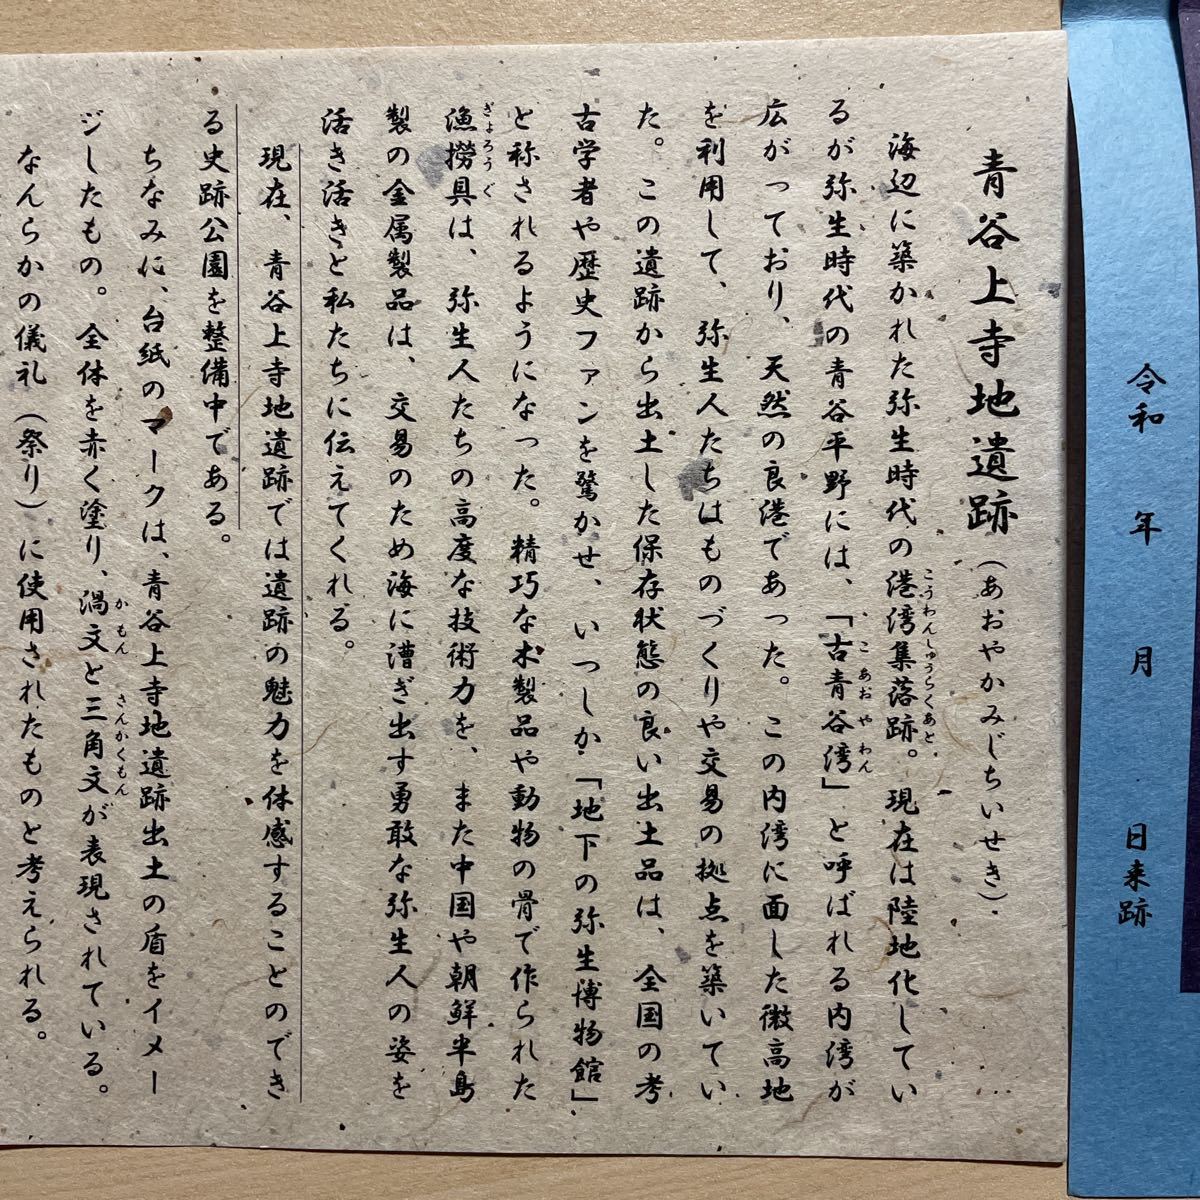 令和 年 月 日来跡
青谷上寺地遺跡（あおやかみじちいせき）
海辺に築かれた弥生時代の港湾集落跡。現在は陸地化してい
こうわんしゅうらくあと
るが弥生時代の青谷平野には、「古青谷湾」と呼ばれる内湾が
こあおやわん
広がっており、天然の良港であった。この内湾に面した微高地
を利用して、弥生人たちはものづくりや交易の拠点を築いてい
た。この遺跡から出土した保存状態の良い出土品は、全国の考
古学者や歴史ファンを驚かせ、いつしか「地下の弥生博物館」
と称されるようになった。精巧な木製品や動物の骨で作られた
漁撈具は、弥生人たちの高度な技術力を、また中国や朝鮮半島
ぎょろうぐ
製の金属製品は、交易のため海に漕ぎ出す勇敢な弥生人の姿を
活き活きと私たちに伝えてくれる。
現在、青谷上寺地遺跡では遺跡の魅力を体感することのでき
る史跡公園を整備中である。
ちなみに、台紙のマークは、青谷上寺地遺跡出土の盾をイメー
ジしたもの。全体を赤く塗り、渦文と三角文が表現されている。
かもん さんかくもん
なんらかの儀礼（祭り）に使用されたものと考えられる。